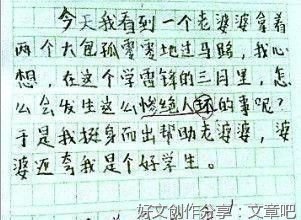 今天我看到一个老婆婆拿着
两个大包孤零零地过马路，我心
想，在这个学雷锋的三月里，怎
么会发生这么惨绝人环的事呢？
于是我挺身而出帮助老婆婆，婆
婆还夸我是个好学生。
好文创作分享：文章吧